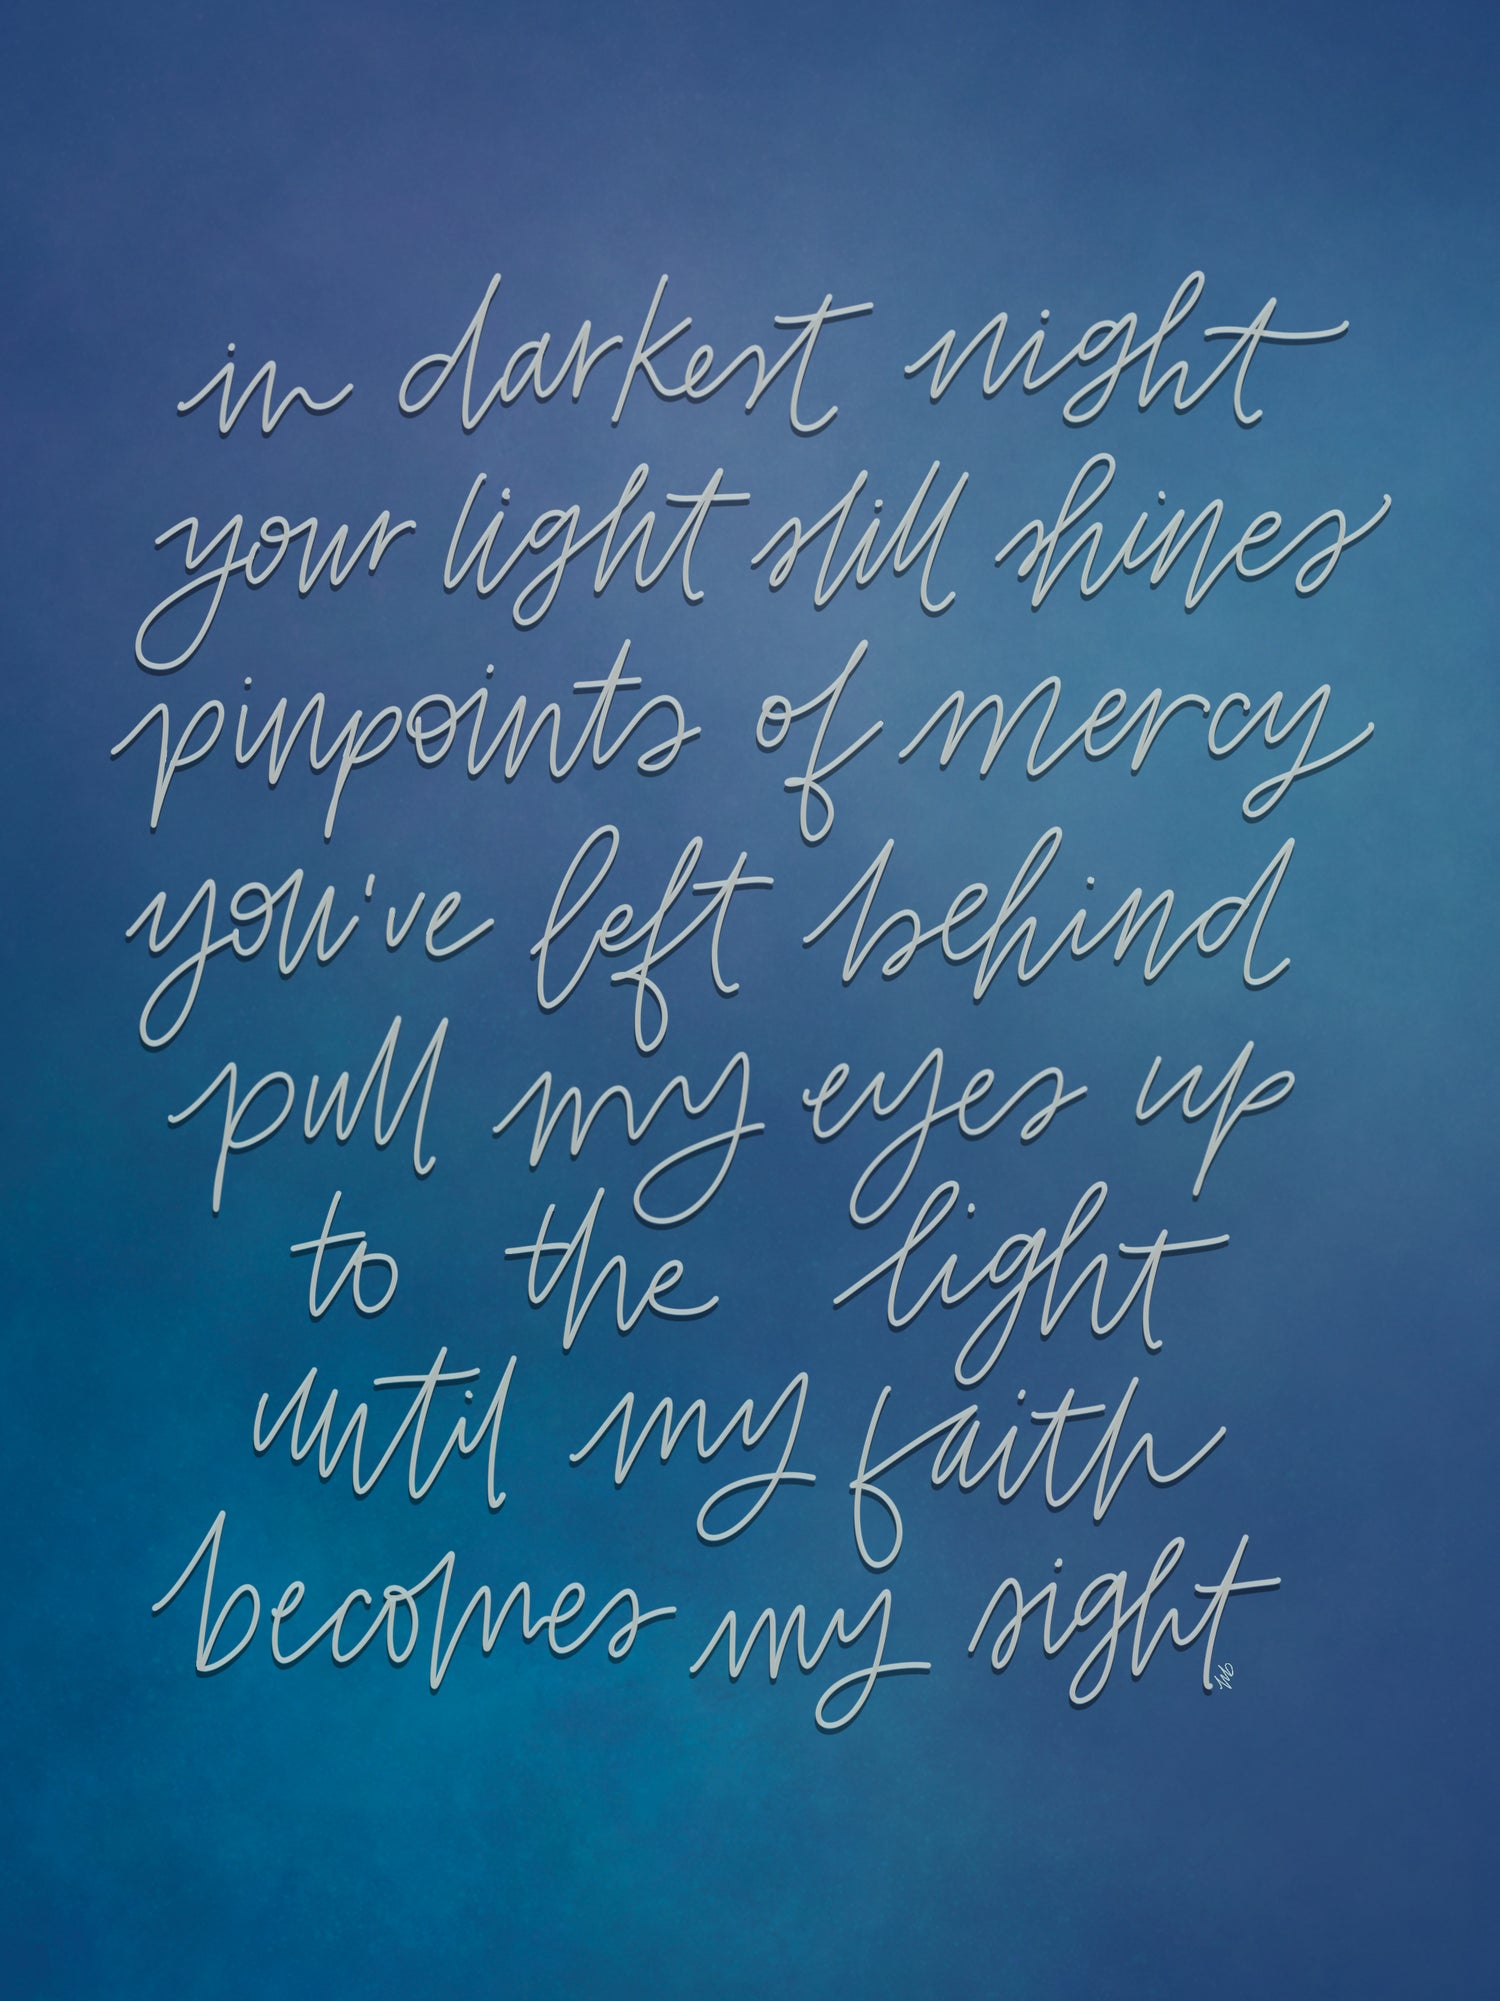 in darkest night
your light still shines
pinpoints of mercy
you've left behind
pull my eyes up
to the light
until my faith
becomes my sight